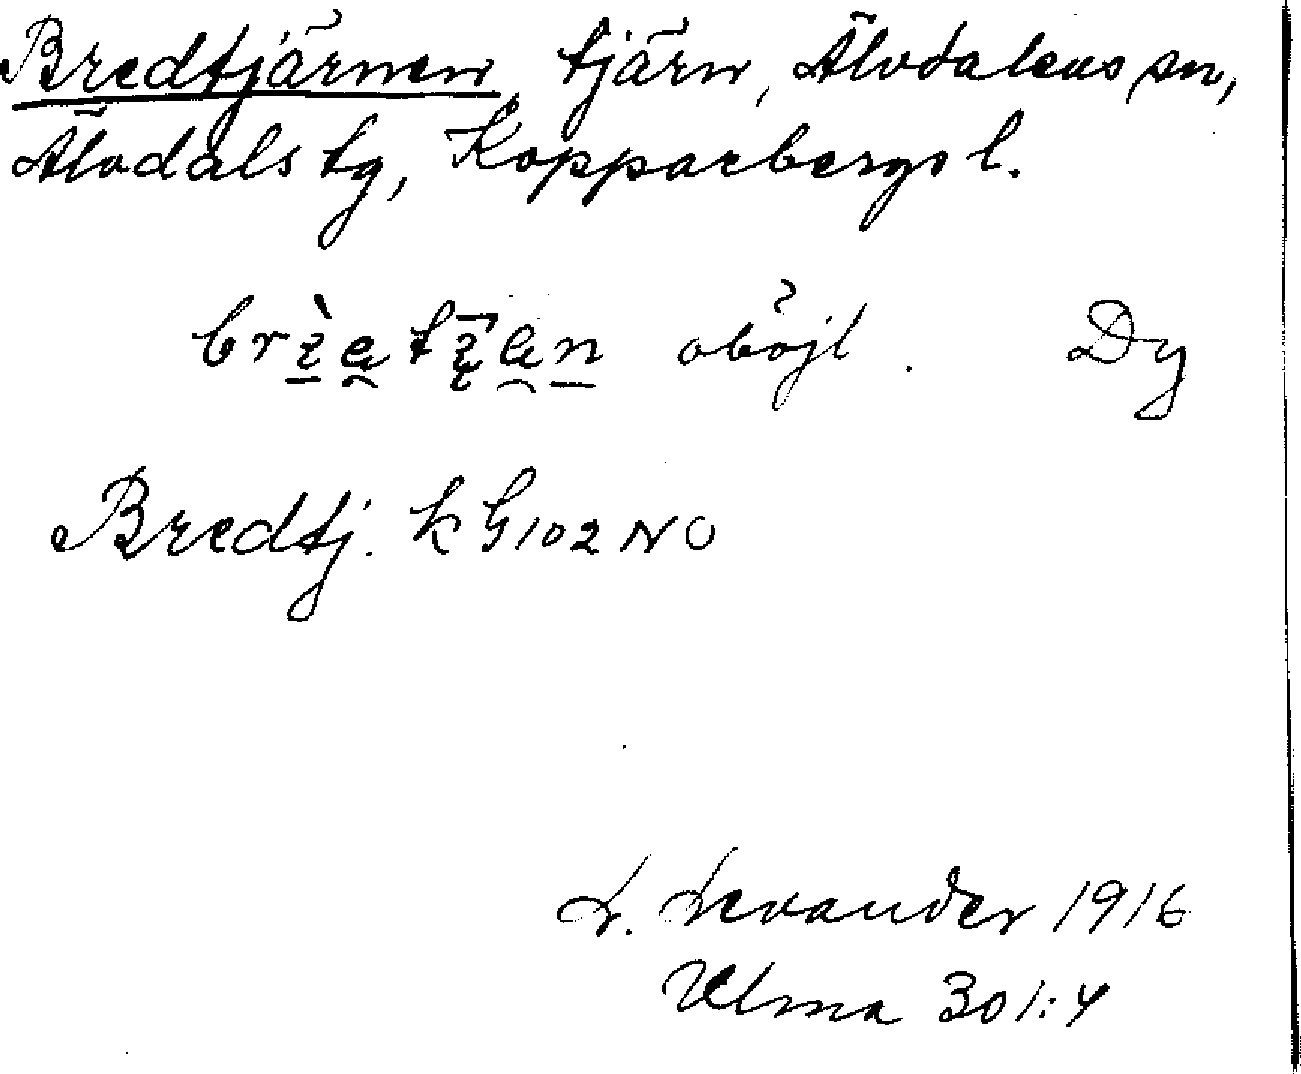 Bredtjärnen tjärn, Älvdalens sn,
Älvdals tg, Kopparbergs l.
oböjl. Dy
Bredtj. k G 102 NO
L. Levander 1916
Ulma 301:4